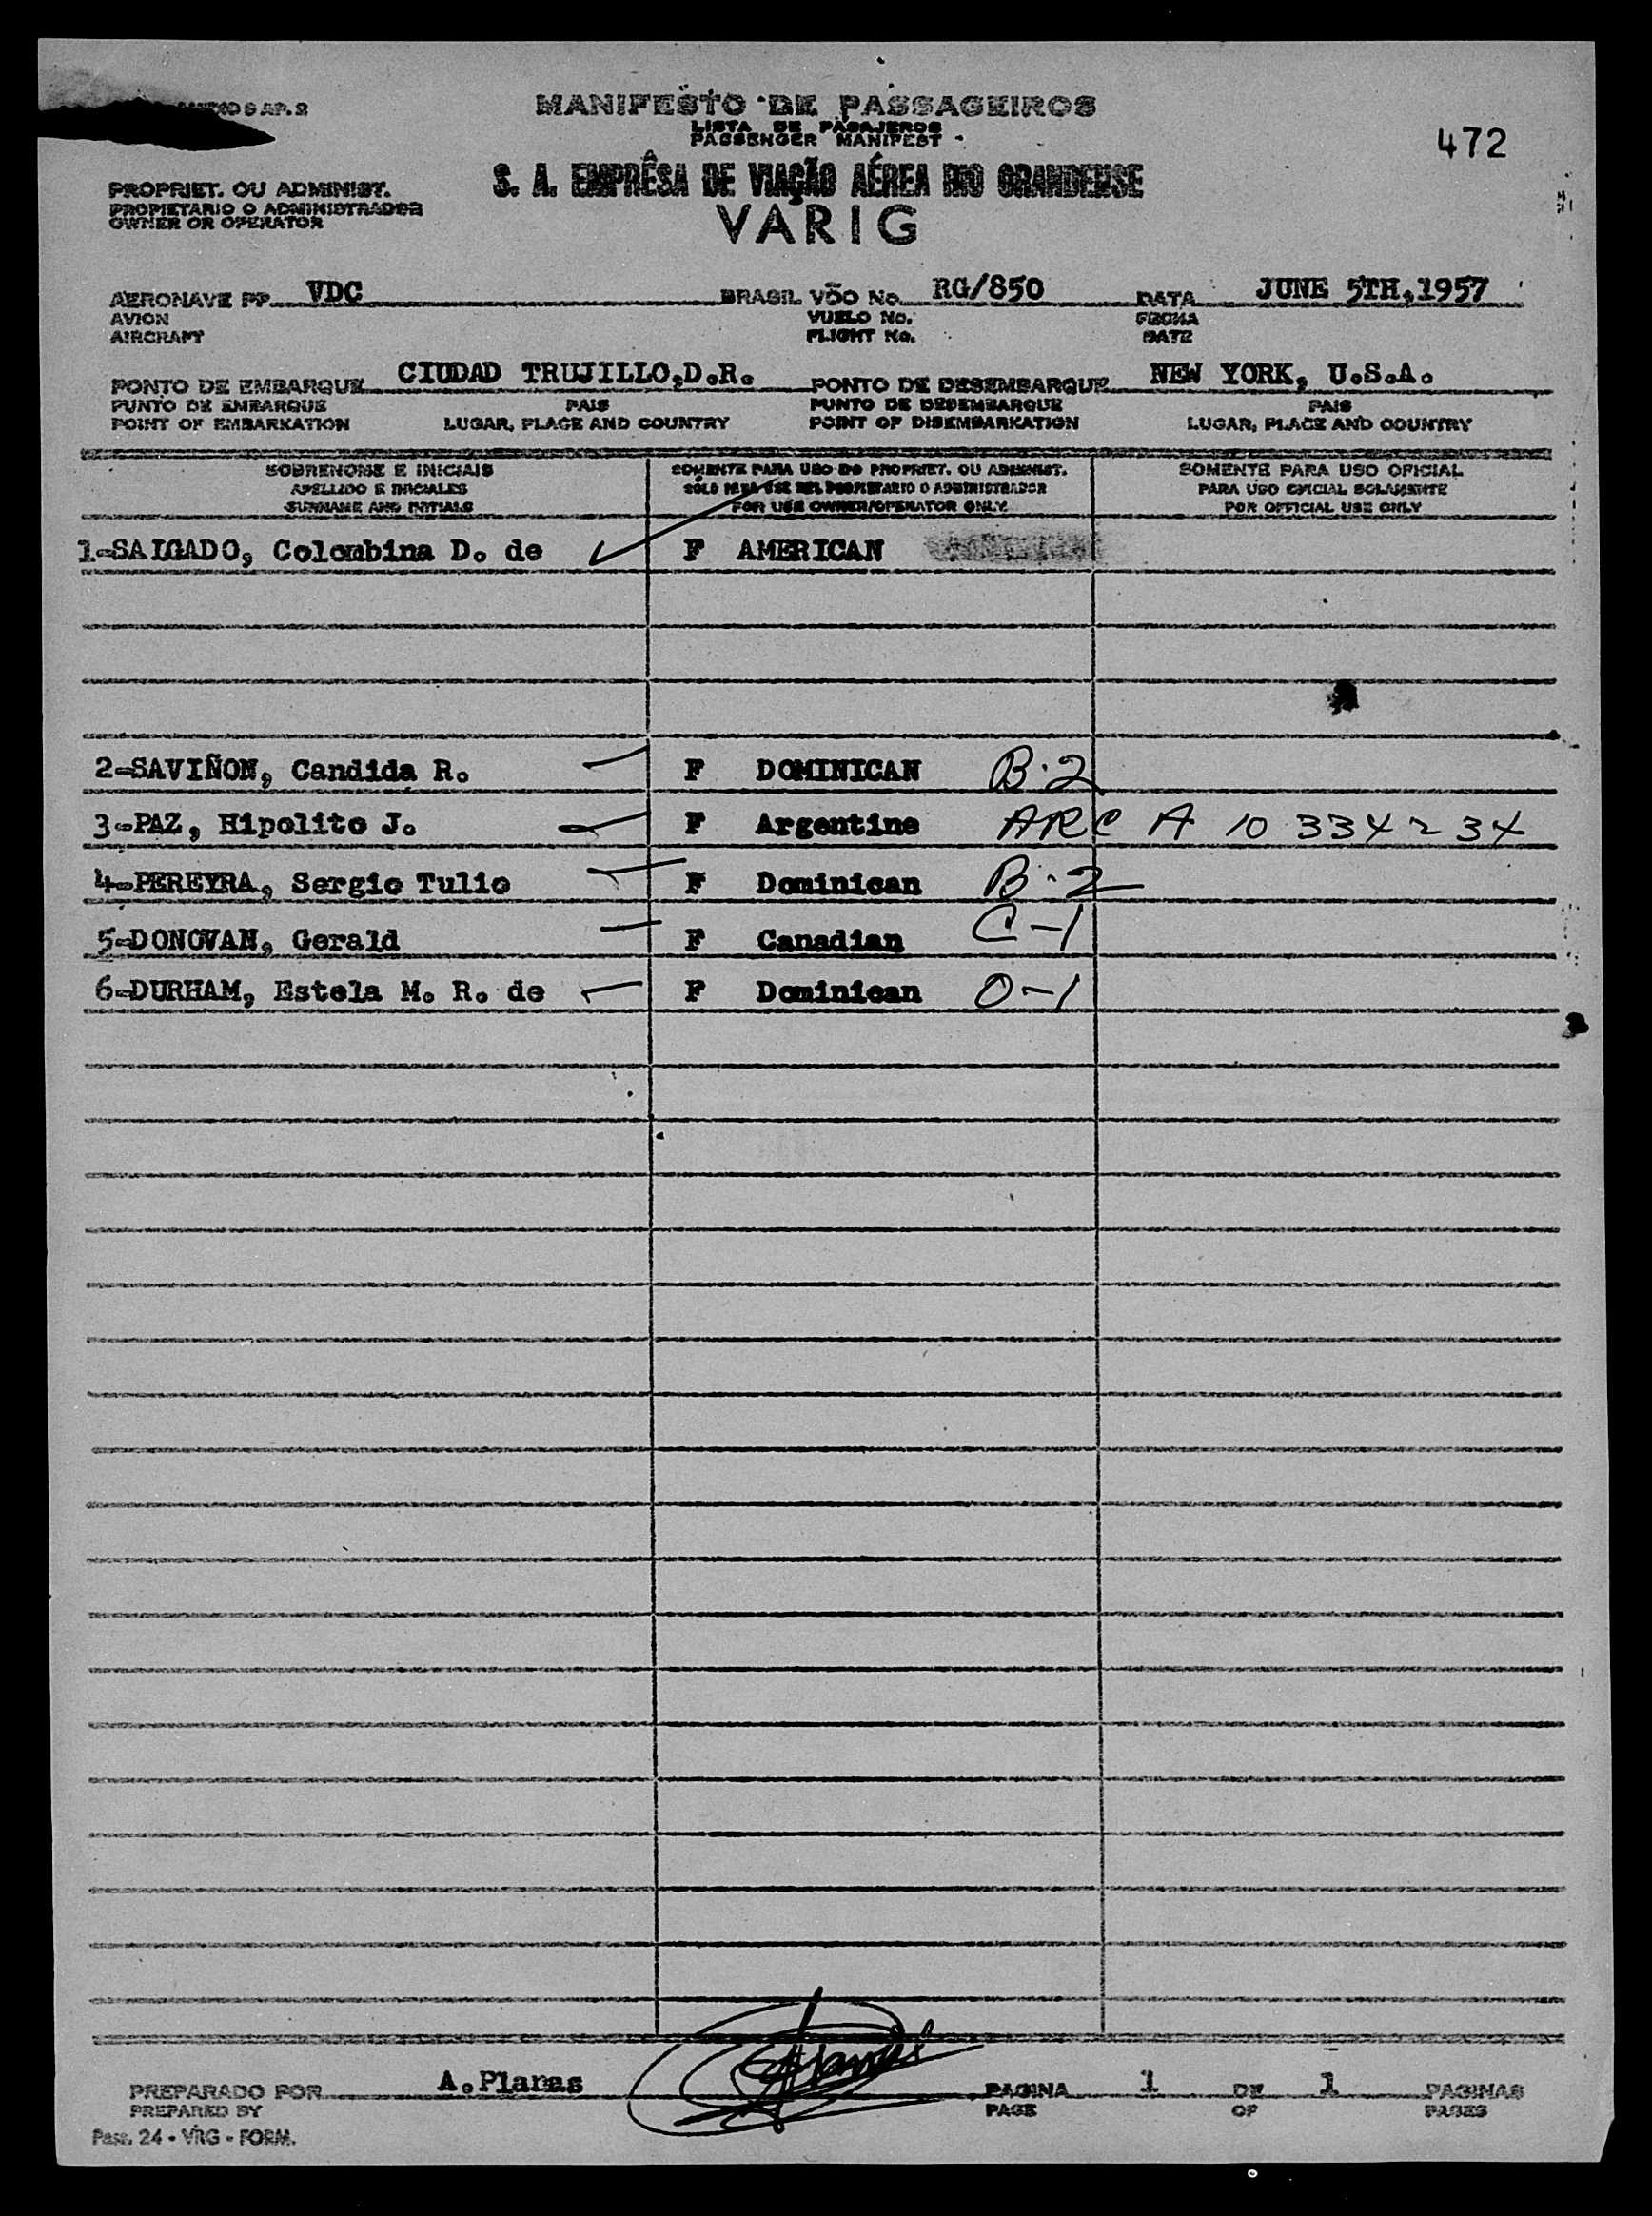 ANEXO 9 AP. 2
MANIFESTO DE PASSAGEIROS
LISTA DE PASAJEROS
PASSENGER MANIFEST
472
S. A. EMPRÊSA DE VIAÇÃO AÉREA RIO GRANDENSE
VARIG
PROPRIET. OU ADMINIST.
PROPIETARIO O ADMINISTRADOR
OWNER OR OPERATOR
AERONAVE PP VDC BRASIL VÕO No. RG/850 DATA JUNE 5TH,1957
AVION VUELO No. FECHA
AIRCRAFT FLIGHT No. DATE
PONTO DE EMBARQUE CIUDAD TRUJILLO,D.R. PONTO DE DESEMBARQUE NEW YORK, U.S.A.
PUNTO DE EMBARQUE PAIS PUNTO DE DESEMBARQUE PAIS
POINT OF EMBARKATION LUGAR, PLACE AND COUNTRY POINT OF DISEMBARKATION LUGAR, PLACE AND COUNTRY
SOBRENOME E INICIAIS SOMENTE PARA USO DO PROPRIET. OU ADMINIST. SOMENTE PARA USO OFICIAL
APELLIDO E INICIALES SÓLO PARA USE DEL PROPRIETARIO O ADMINISTRADOR PARA USO OFICIAL SOLAMENTE
SURNAME AND INITIALS FOR USE OWNER/OPERATOR ONLY FOR OFFICIAL USE ONLY
1-SALGADO, Colombina D. de F AMERICAN
2-SAVIÑON, Candida R. F DOMINICAN B-2
3-PAZ, Hipolito J. F Argentine ARC A 10 334 234
4-PEREYRA, Sergio Tulio F Dominican B-2
5-DONOVAN, Gerald F Canadian C-1
6-DURHAM, Estela M. R. de F Dominican O-1
PREPARADO POR A.Planas PAGINA 1 DE 1 PAGINAS
PREPARED BY PAGE OF PAGES
Pass. 24 - VRG - FORM.